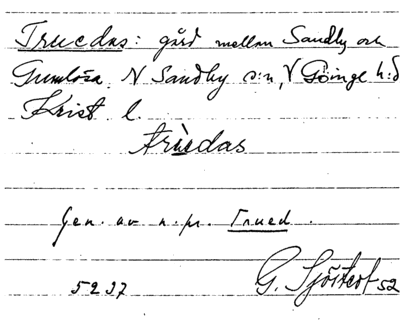 Truedas: gård mellan Sandby och
Gumlösa, N Sandby s:n, V Göinge h:d
Krist l.
trùedas
Gen. av n. pr. Trued.
G. Sjöstedt 52
5237